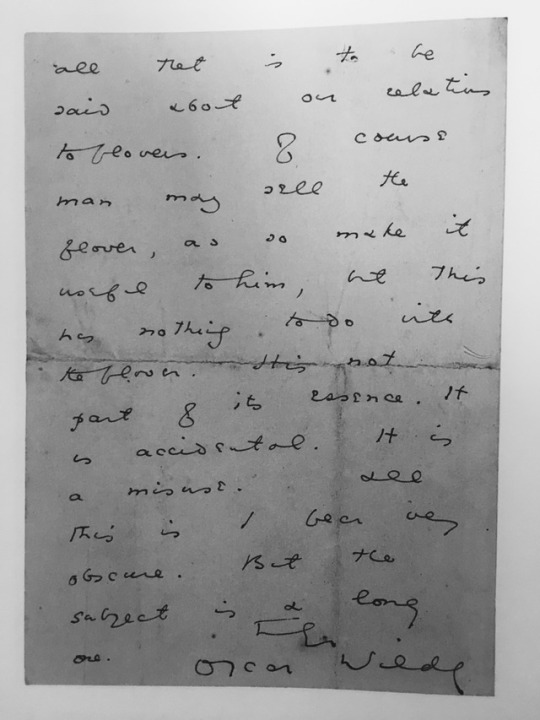 all that is to be
said about our relations
to flowers. Of course
man may sell the
flower, and so make it
useful to him, but this
has nothing to do with
the flower. It is not
part of its essence. It
is accidental. It is
a misuse. All
this is I fear very
obscure. But the
subject is a long
one. Truly
Oscar Wilde